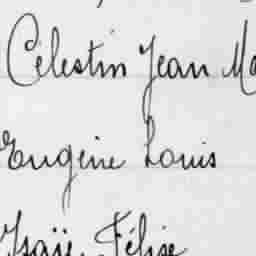 Célestin Jean Ma
Eugène Louis
Isaïe Félise